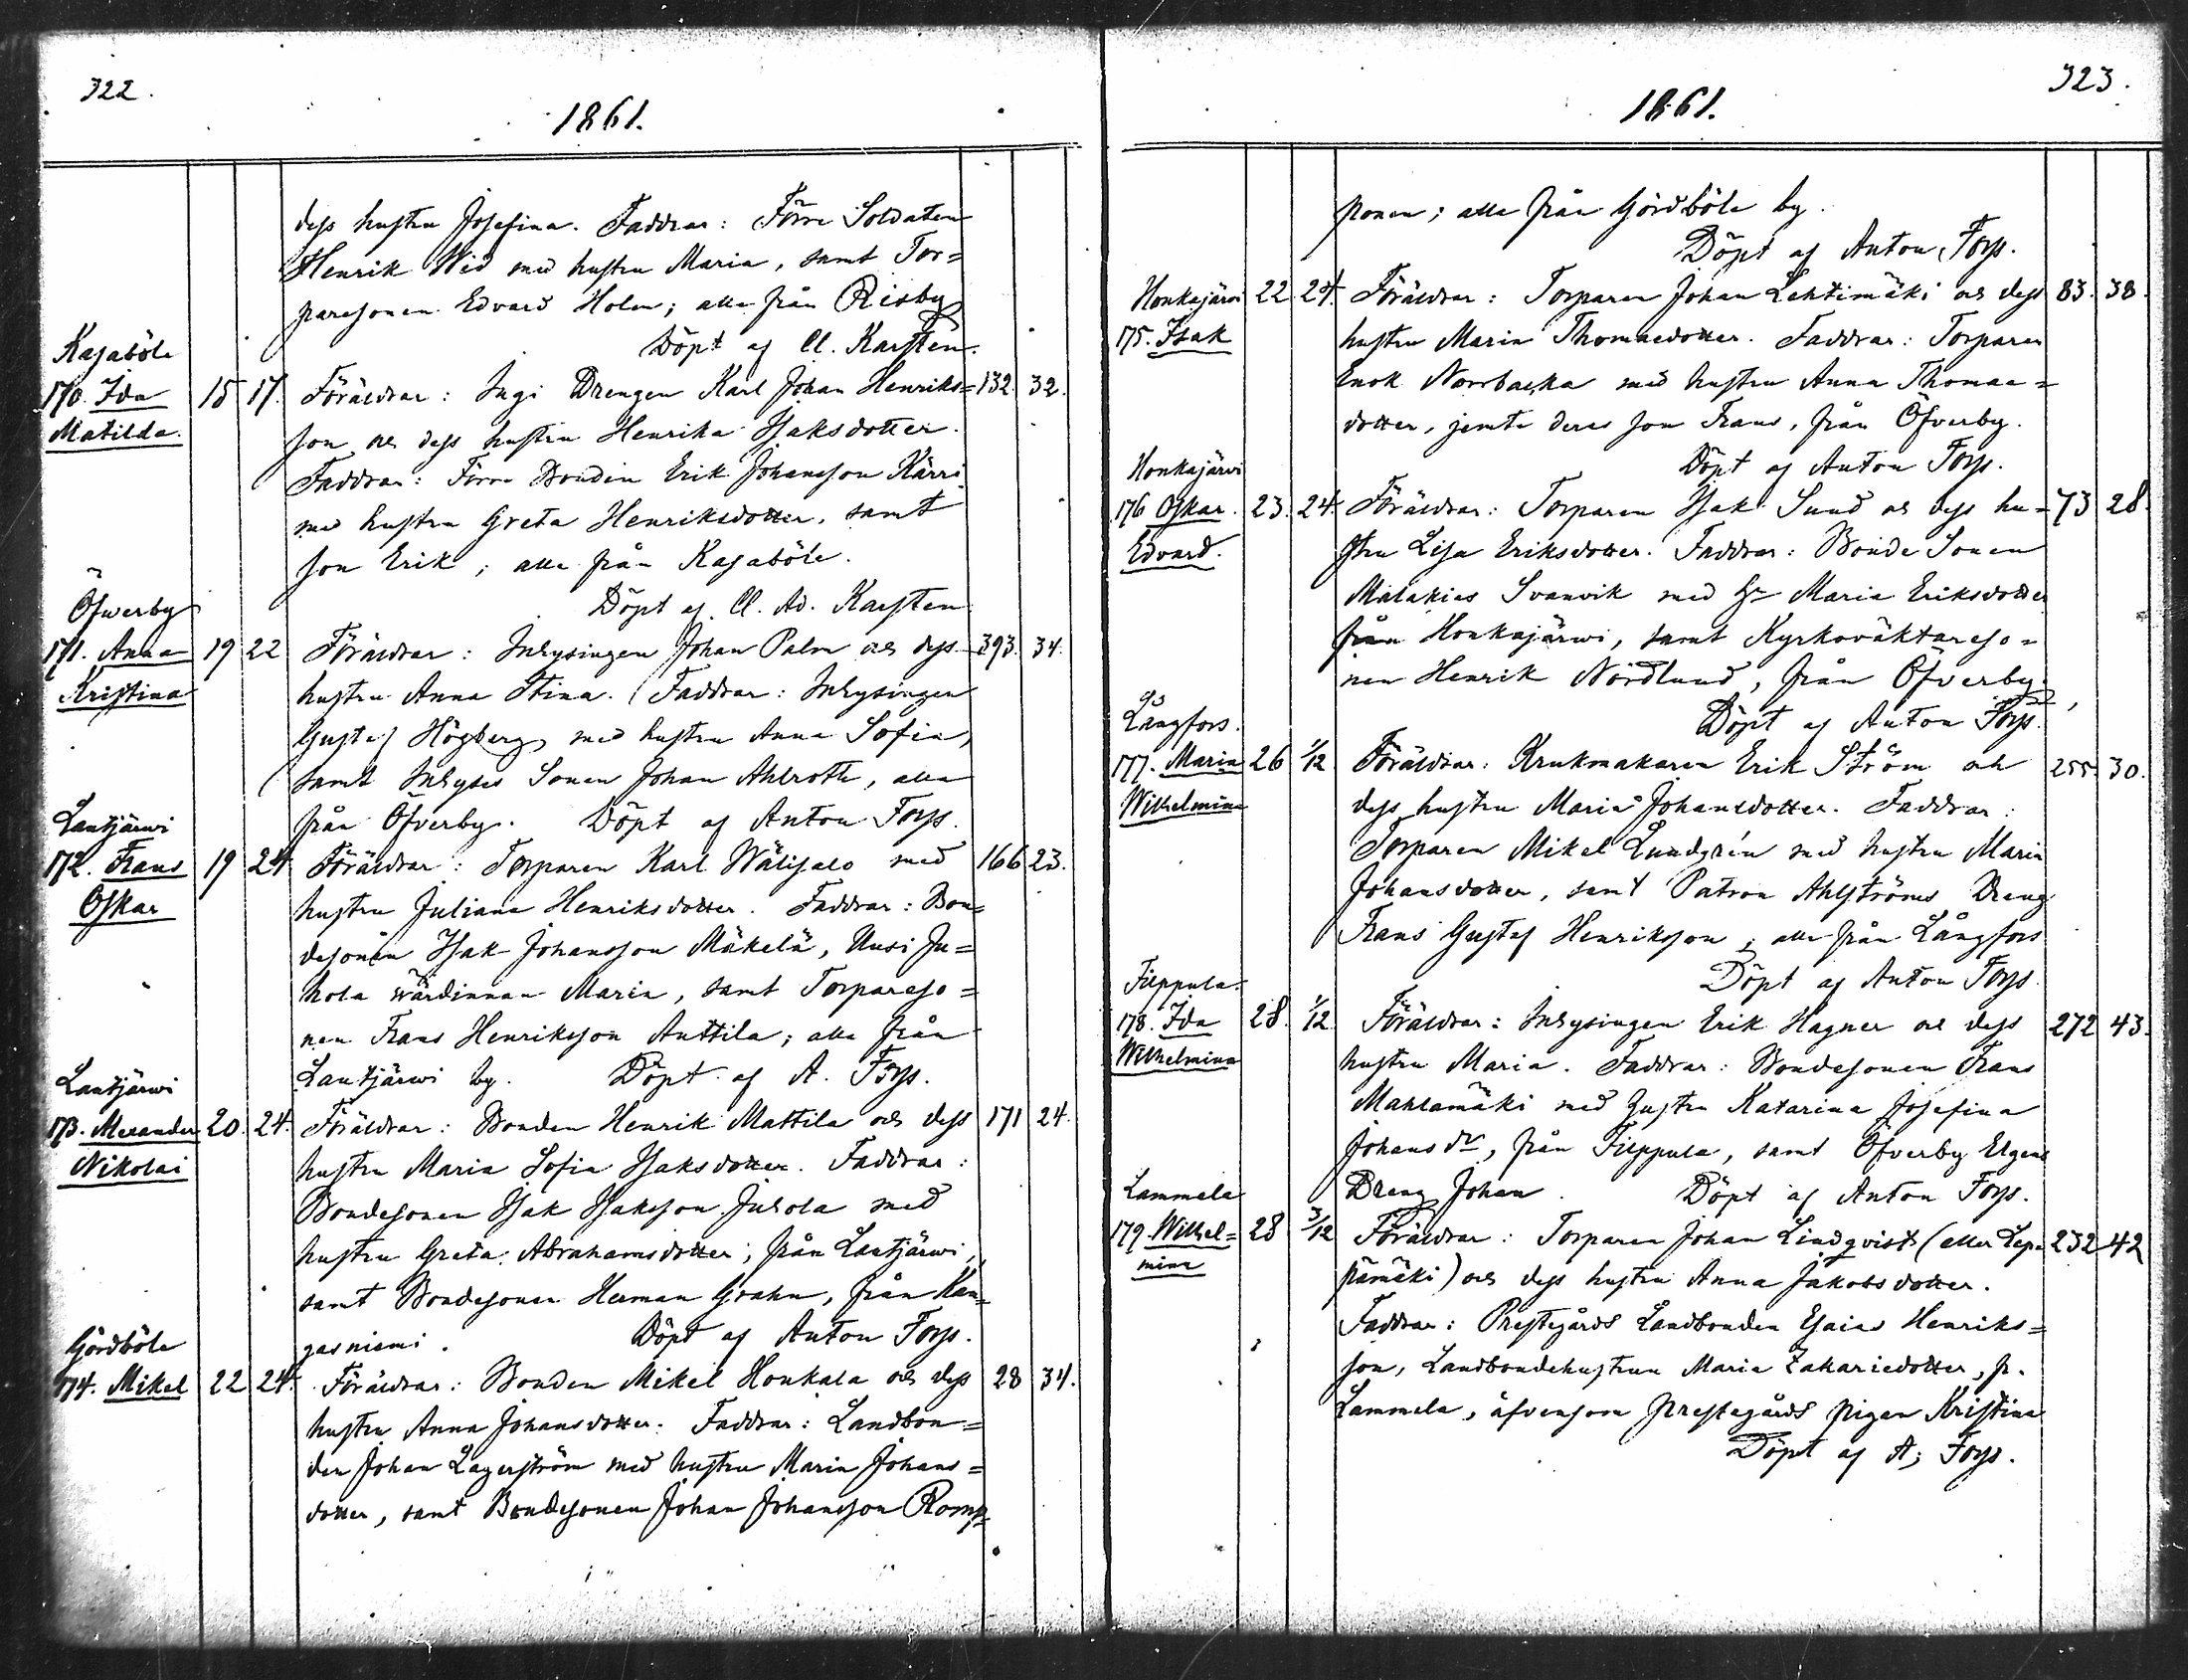 322.
1861.
dess hustru Josefina. Faddrar: Förre Soldaten
Henrik Wid med hustru Maria, samt Tor=
paresonen Edvard Holm; alla från Risby
Döpt af Cl. Karsten.
Kasaböle
170. Ida 15 17. Föräldrar: Ingi Drengen Karl Johan Henriks= 132. 32.
Matilda. son och dess hustru Henrika Isaksdotter.
Faddrar: Förre Bonden Erik Johansson Kärri
med hustru Greta Henriksdotter, samt
son Erik; alla från Kasaböle.
Döpt af Cl. Ad. Karsten
Öfwerby
171. Anna 19 22 Föräldrar: Inhysingen Johan Palm och dess 393. 34.
Kristina hustru Anna Stina. Faddrar: Inhysingen
Gustaf Högberg med hustru Anna Sofia,
samt Inhyses Sonen Johan Ahlroth, alla
från Öfverby. Döpt af Anton Forss.
Lautjärwi
172. Frans 19 24 Föräldrar: Torparen Karl Wälisalo med 166 23.
Oskar hustru Juliana Henriksdotter. Faddrar: Bon=
desonen Isak Johansson Mäkelä, Uusi Ju=
hola wärdinnan Maria, samt Torpareso=
nen Frans Henriksson Anttila; alla från
Lautjärwi by. Döpt af A. Forss.
Lautjärwi
173. Alexander 20. 24. Föräldrar: Bonden Henrik Mattila och dess 171 24.
Nikolai hustru Maria Sofia Isaksdotter. Faddrar:
Bondesonen Isak Isaksson Juhola med
hustru Greta Abrahamsdotter; från Lautjärwi,
samt Bondesonen Herman Grahn, från Kan=
gasniemi. Döpt af Anton Forss.
Gördböle
174. Mikel 22 24. Föräldrar: Bonden Mikel Honkala och dess 28 34.
hustru Anna Johansdotter. Faddrar: Landbon=
den Johan Lagerström med hustru Maria Johans=
dotter, samt Bondesonen Johan Johansson Romp=
323.
1861.
ponen; alla från Gördböle by.
Döpt af Anton Forss.
Honkajärwi 22 24. Föräldrar: Torparen Johan Lehtimäki och dess 83. 38.
175. Isak hustru Maria Thomaedotter. Faddrar: Torparen
Enok Norrbacka med hustru Anna Thomae=
dotter, jemte deras son Frans, från Öfverby.
Döpt af Anton Forss.
Honkajärwi
176 Oskar 23. 24. Föräldrar: Torparen Isak Sund och dess hu= 73 28.
Edvard. stru Lisa Eriksdotter. Faddrar: Bonde Sonen
Malakias Svanvik med hu Maria Eriksdotter
från Honkajärwi, samt Kyrkoväktareso=
nen Henrik Nordlund, från Öfverby.
Döpt af Anton Forss.
Långfors.
177. Maria 26 1/12 Föräldrar: Krukmakaren Erik Ström och 255 30.
Wilhelmina dess hustru Maria Johansdotter. Faddrar:
Torparen Mikel Lundgrén med hustru Maria
Johansdotter, samt Patron Ahlströms Dreng
Frans Gustaf Henriksson; alla från Långfors
Döpt af Anton Forss.
Filppula.
178. Ida 28. 1/12. Föräldrar: Inhysingen Erik Hagner och dess 272 43.
Wilhelmina hustru Maria. Faddrar: Bondesonen Frans
Mahlamäki med hustru Katarina Josefina
Johansdr, från Filppula, samt Öfverby
Dreng Johan. Döpt af Anton Forss.
Lammela
179. Wilhel= 28 3/12 Föräldrar: Torparen Johan Lindqvist (eller Lep= 232 42
mina pämäki) och dess hustru Anna Jakobsdotter.
Faddrar: Prestegårds Landbonden Esaias Henriks=
son, Landbondehustrun Maria Zakariedotter, fr.
Lammela, äfvensom prestegårds pigan Kristina
Döpt af A. Forss.